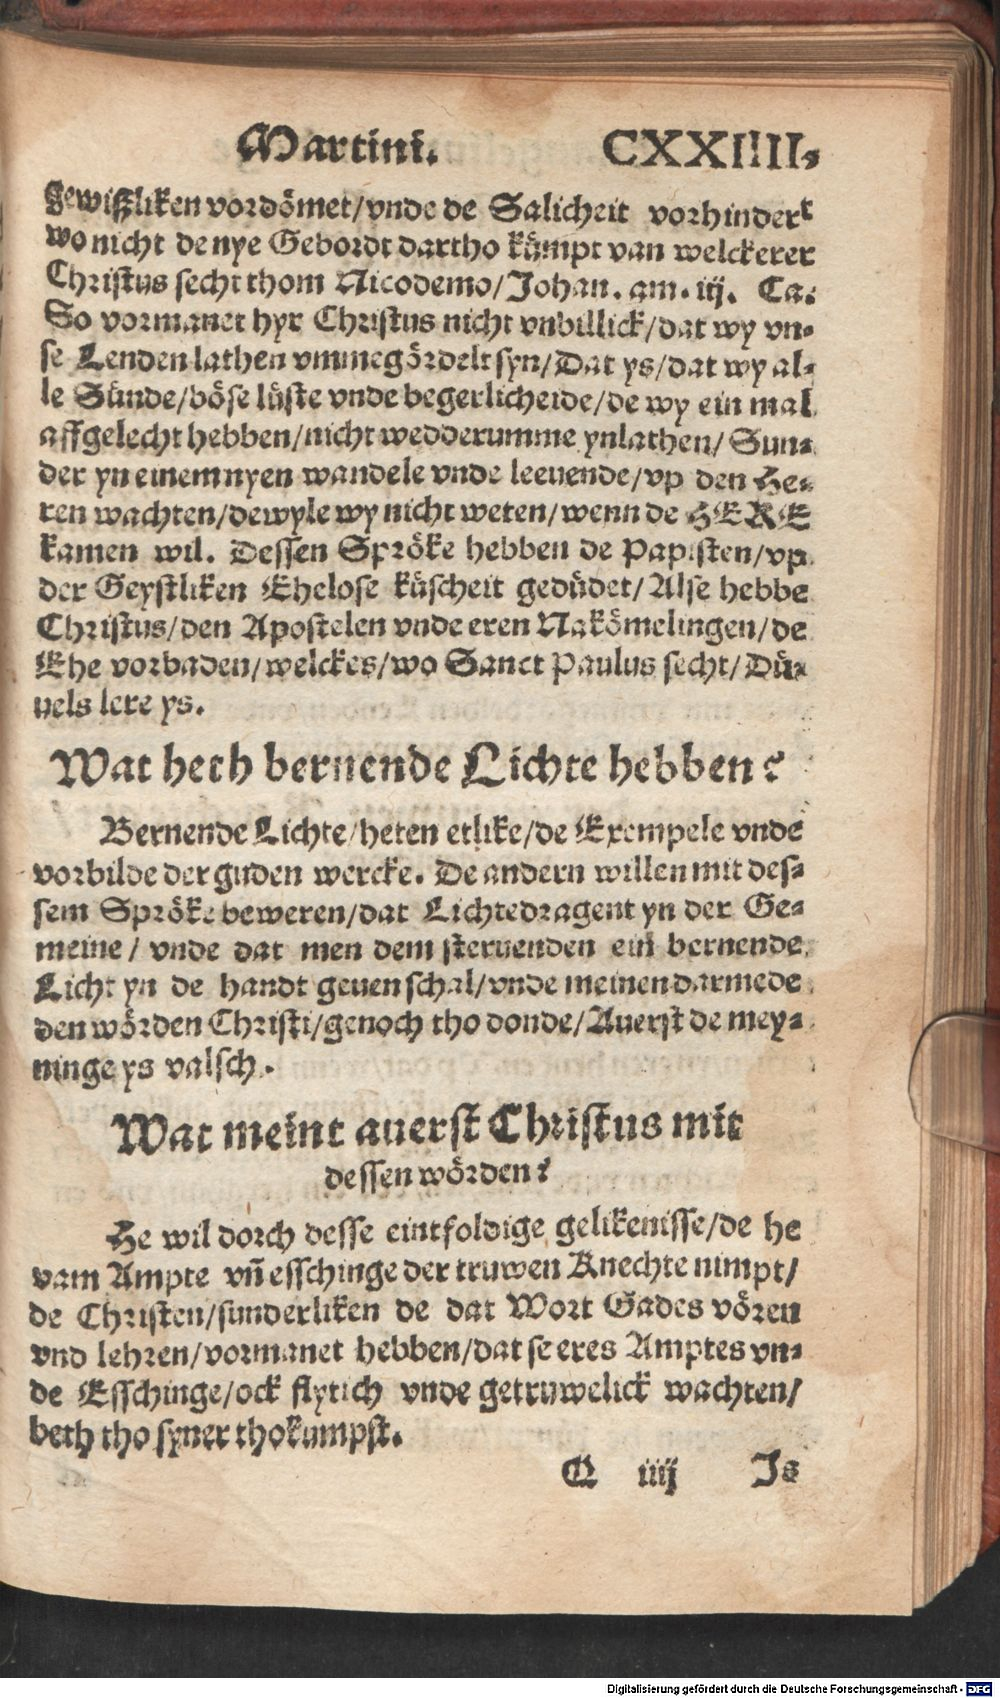 Martini. CXXIIII.
gewißliken vordömet/vnde de Salicheit vorhindert
wo nicht de nye Gebordt dartho kümpt van welckerer
Christus secht thom Nicodemo/Johan. am. iij. Ca.
So vormanet hyr Christus nicht vnbillick/dat wy vn-
se Lenden lathen vmmegördelt syn/Dat ys/dat wy al-
le Sünde/böse lüste vnde begerlicheide/de wy ein mal
affgelecht hebben/nicht wedderumme ynlathen/Sun-
der yn einem nyen wandele vnde leeuende/vp den He-
ren wachten/dewyle wy nicht weten/wenn de HERE
kamen wil. Dessen Spröke hebben de Papisten/vp
der Geystliken Ehelose küscheit gedüdet/Alse hebbe
Christus/den Apostelen vnde eren Nakömelingen/de
Ehe vorbaden/welckes/wo Sanct Paulus secht/Dü-
uels lere ys.
Wat heth bernende Lichte hebben?
Bernende Lichte/heten etlike/de Exempele vnde
vorbilde der guden wercke. De andern willen mit des-
sem Spröke beweren/dat Lichtedragent yn der Ge-
meine/vnde dat men dem steruenden ein bernende
Licht yn de handt geuen schal/vnde meinen darmede
den wörden Christi/genoch tho donde/Auerst de mey-
ninge ys valsch.
Wat meint auerst Christus mit
dessen wörden?
He wil dorch desse eintfoldige gelikenisse/de he
vam Ampte vñ esschinge der truwen Knechte nimpt/
de Christen/sunderliken de dat Wort Gades vören
vnd lehren/vormanet hebben/dat se eres Amptes vn-
de Esschinge/ock flytich vnde getruwelick wachten/
beth tho syner thokumpst.
Q iiij Is
Digitalisierung gefördert durch die Deutsche Forschungsgemeinschaft - DFG